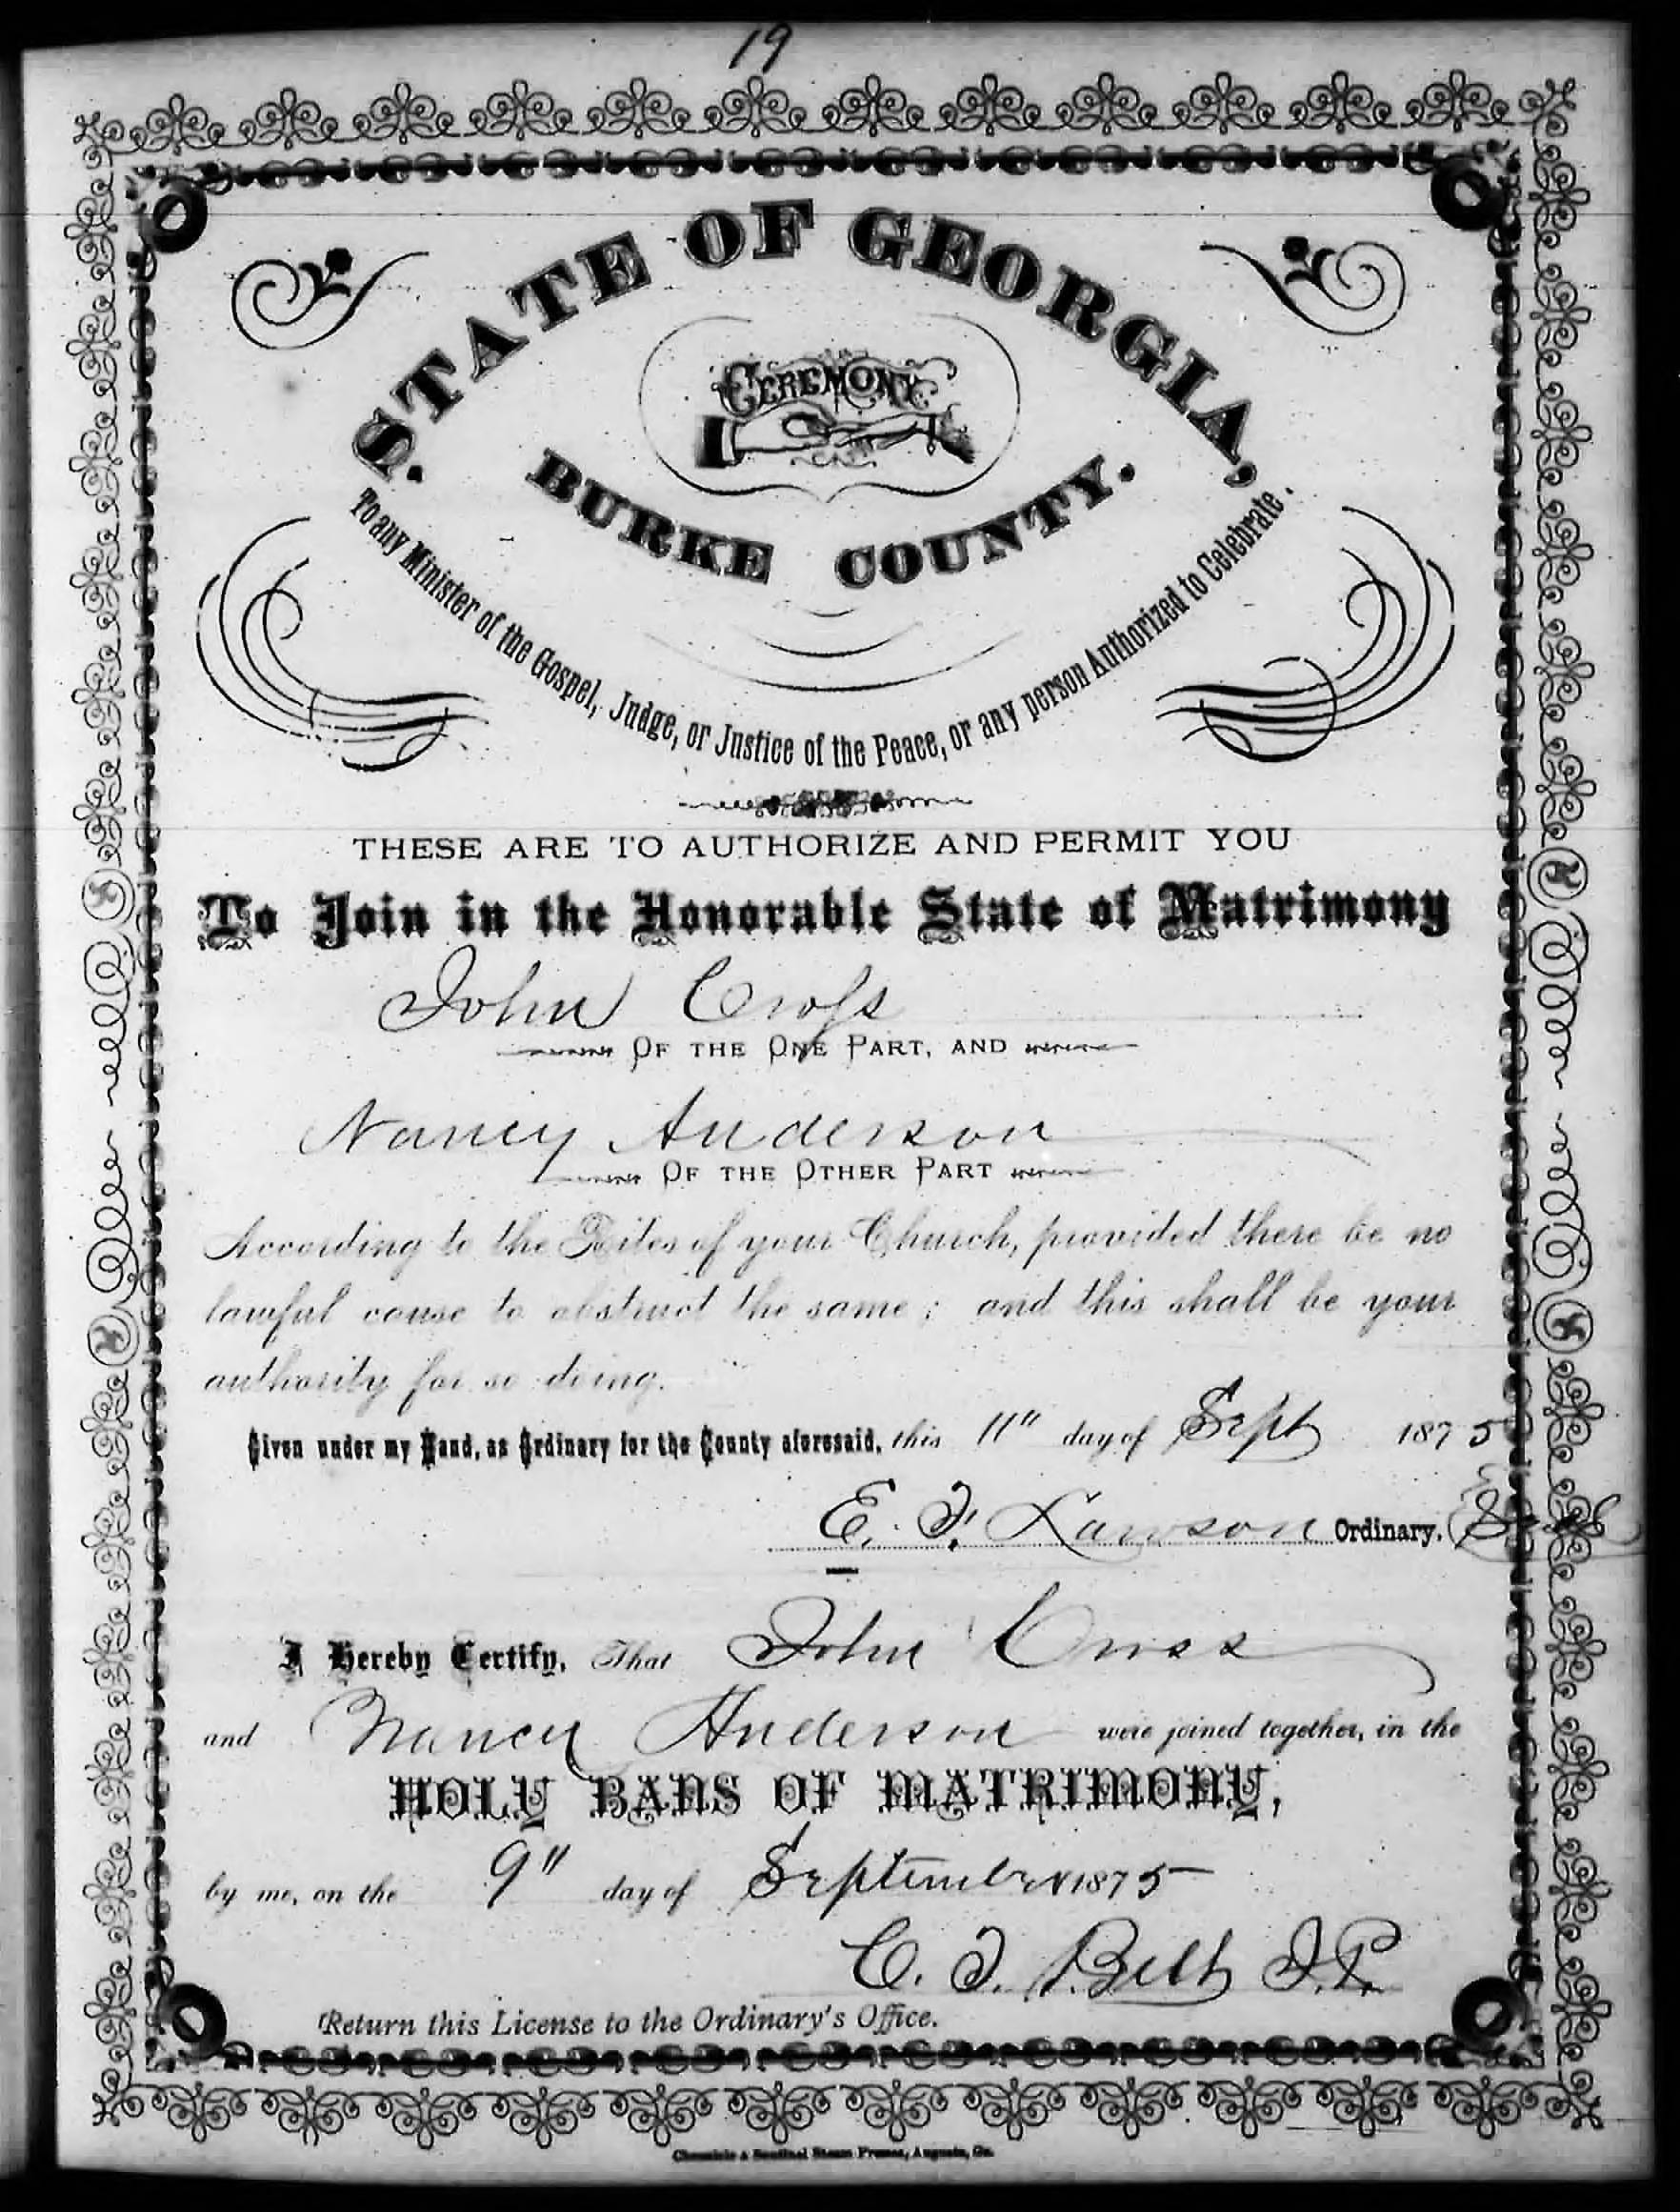 19
STATE OF GEORGIA,
CEREMONY
BURKE COUNTY.
To any Minister of the Gospel, Judge, or Justice of the Peace, or any person Authorized to Celebrate.
THESE ARE TO AUTHORIZE AND PERMIT YOU
To Join in the Honorable State of Matrimony
John Croſs
OF THE ONE PART, AND
Nancy Anderson
OF THE OTHER PART
According to the Rites of your Church, provided there be no
lawful cause to obstruct the same; and this shall be your
authority for so doing.
Given under my Hand, as Ordinary for the County aforesaid, this 11" day of Sept 1875
E. F. Lawson Ordinary. Seal
I Hereby Certify, That John Cross
and Nancy Anderson were joined together, in the
HOLY BANS OF MATRIMONY,
by me, on the 9" day of September 1875
C. T. Belt J.P.
Return this License to the Ordinary's Office.
Chronicle & Sentinel Steam Presses, Augusta, Ga.